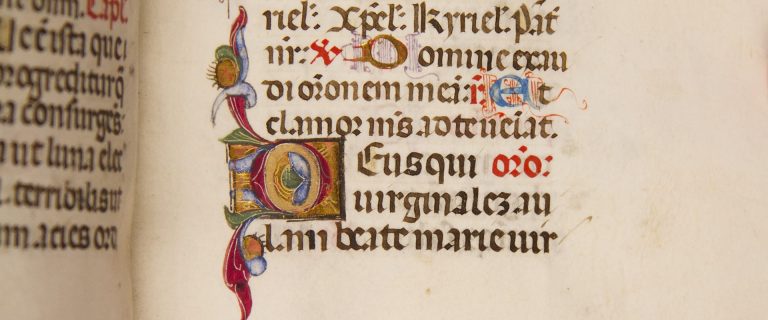 olim. Cap̄l:
ē ista que
progreditur q̄
a consurges:
ut luna elec
terribilis ut
m acies oro
riel: Xp̄el: Kyriel. Pat̄
nr̄: ℣ Domine exau
di or̄onem meā: ℟ Et
clamor m̄s ad te ueīat.
Deus qui or̄o:
uirginalez au
lam beate marie uir